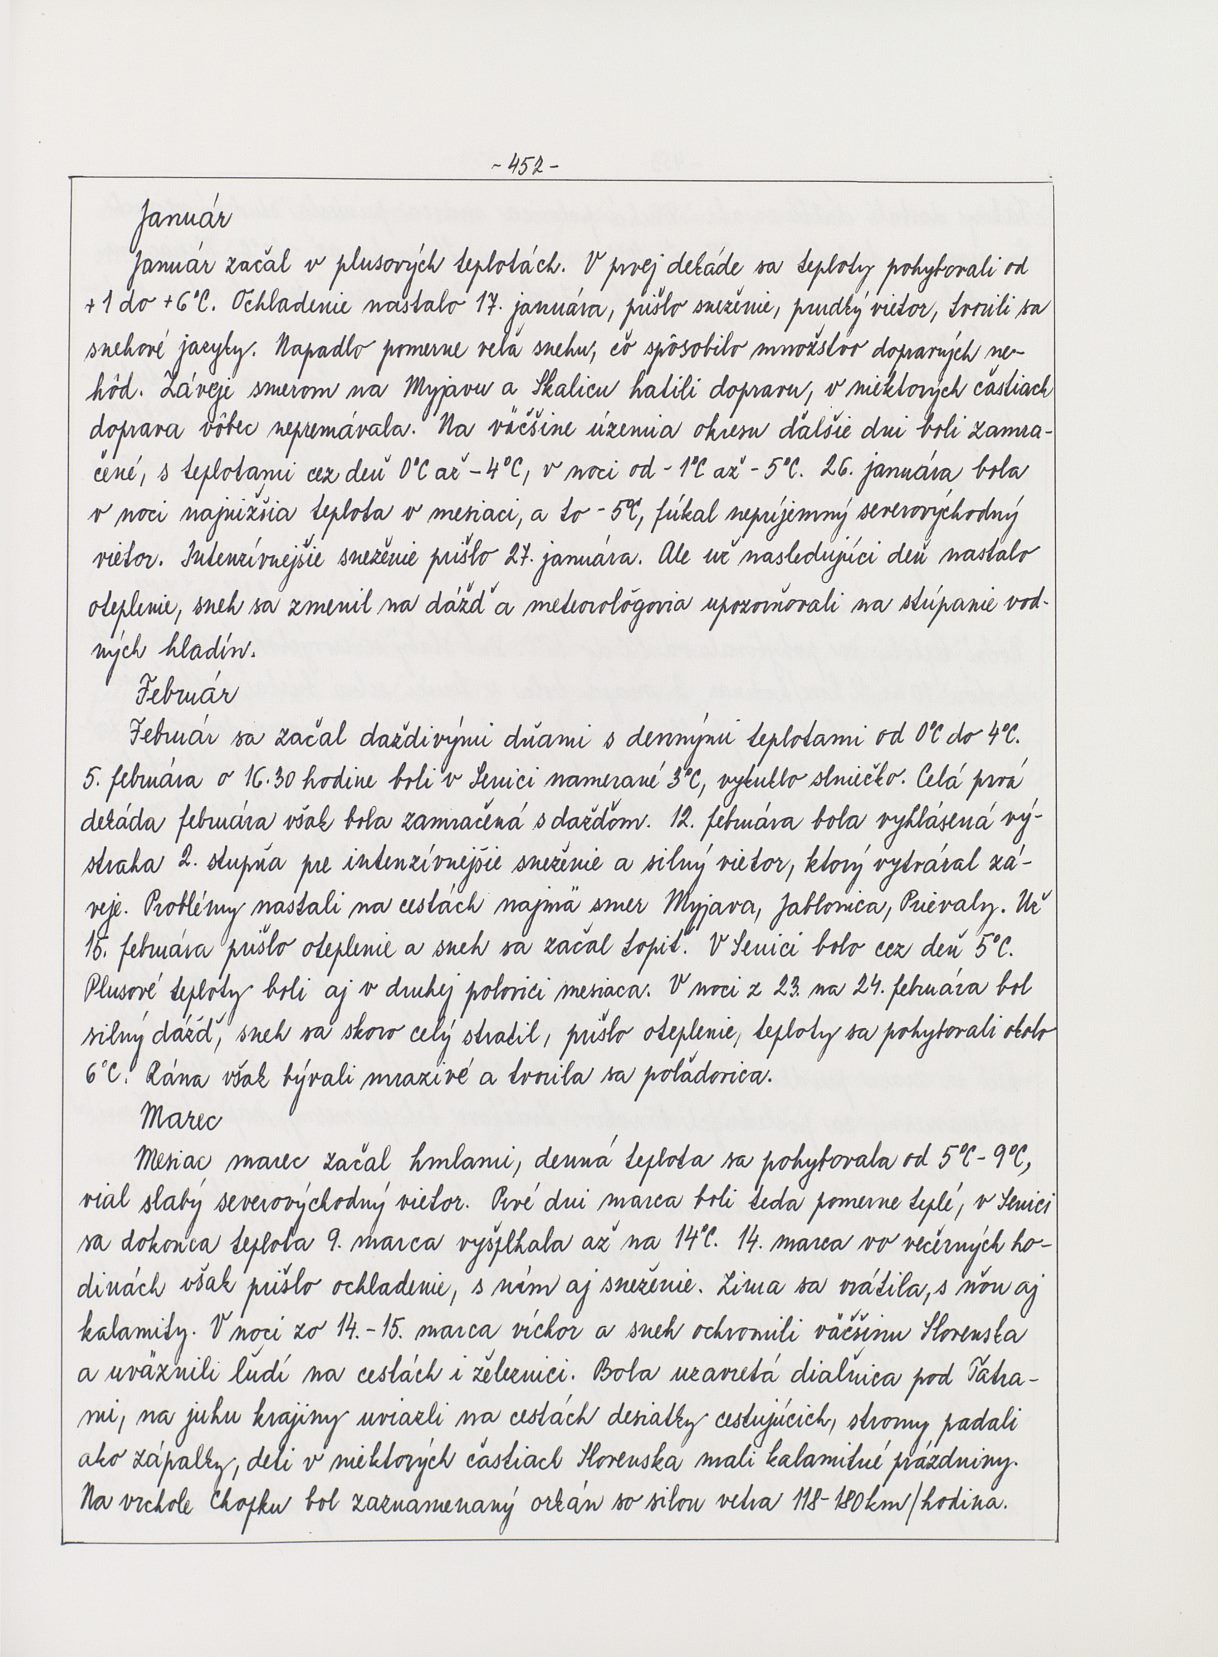 - 452 -
Január
Január začal v plusových teplotách. V prvej dekáde sa teploty pohybovali od
+1 do +6°C. Ochladenie nastalo 17. januára, prišlo sneženie, prudký vietor, tvorili sa
snehové jazyky. Napadlo pomerne veľa snehu, čo spôsobilo množstvo dopravných ne-
hôd. Záveje smerom na Myjavu a Skalicu hatili dopravu, v niektorých častiach
doprava vôbec nepremávala. Na väčšine územia okresu ďalšie dni boli zamra-
čené, s teplotami cez deň 0°C až -4°C, v noci od -1°C až -5°C. 26. januára bola
v noci najnižšia teplota v mesiaci, a to -5°C, fúkal nepríjemný severovýchodný
vietor. Intenzívnejšie sneženie prišlo 27. januára. Ale už nasledujúci deň nastalo
oteplenie, sneh sa zmenil na dážď a meteorológovia upozorňovali na stúpanie vod-
ných hladín.
Február
Február sa začal daždivými dňami s dennými teplotami od 0°C do 4°C.
5. februára o 16.30 hodine boli v Senici namerané 3°C, vykuklo slniečko. Celá prvá
dekáda februára však bola zamračená s dažďom. 12. februára bola vyhlásená vý-
straha 2. stupňa pre intenzívnejšie sneženie a silný vietor, ktorý vytváral zá-
veje. Problémy nastali na cestách najmä smer Myjava, Jablonica, Prievaly. Už
15. februára prišlo oteplenie a sneh sa začal topiť. V Senici bolo cez deň 5°C.
Plusové teploty boli aj v druhej polovici mesiaca. V noci z 23. na 24. februára bol
silný dážď, sneh sa skoro celý stratil, prišlo oteplenie, teploty sa pohybovali okolo
6°C. Rána však bývali mrazivé a tvorila sa poľadovica.
Marec
Mesiac marec začal hmlami, denná teplota sa pohybovala od 5°C - 9°C,
vial slabý severovýchodný vietor. Prvé dni marca boli teda pomerne teplé, v Senici
sa dokonca teplota 9. marca vyšplhala až na 14°C. 14. marca vo večerných ho-
dinách však prišlo ochladenie, s ním aj sneženie. Zima sa vrátila, s ňou aj
kalamity. V noci zo 14. - 15. marca víchor a sneh ochromili väčšinu Slovenska
a uväznili ľudí na cestách i železnici. Bola uzavretá diaľnica pod Tatra-
mi, na juhu krajiny uviazli na cestách desiatky cestujúcich, stromy padali
ako zápalky, deti v niektorých častiach Slovenska mali kalamitné prázdniny.
Na vrchole Chopku bol zaznamenaný orkán so silou vetra 118-180 km/hodina.